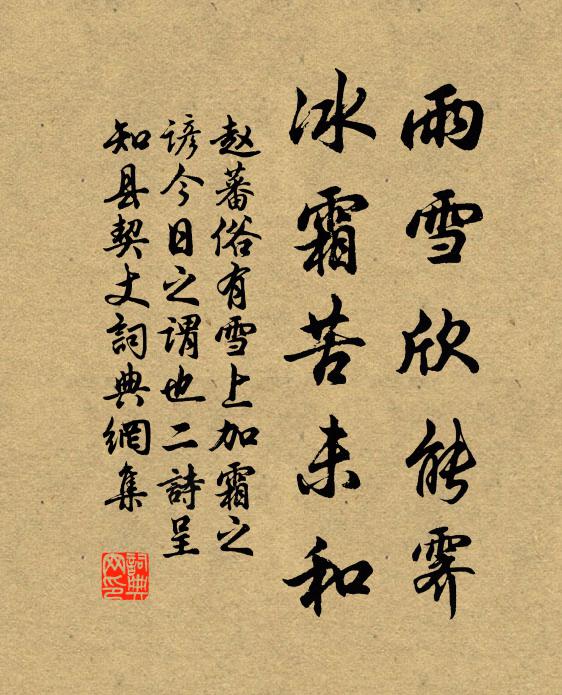 雨雪欣能霽
冰霜苦未和
赵蕃俗有雪上加霜之
諺今日之谓也二詩呈
知县契丈詞典網集
詞典
网印